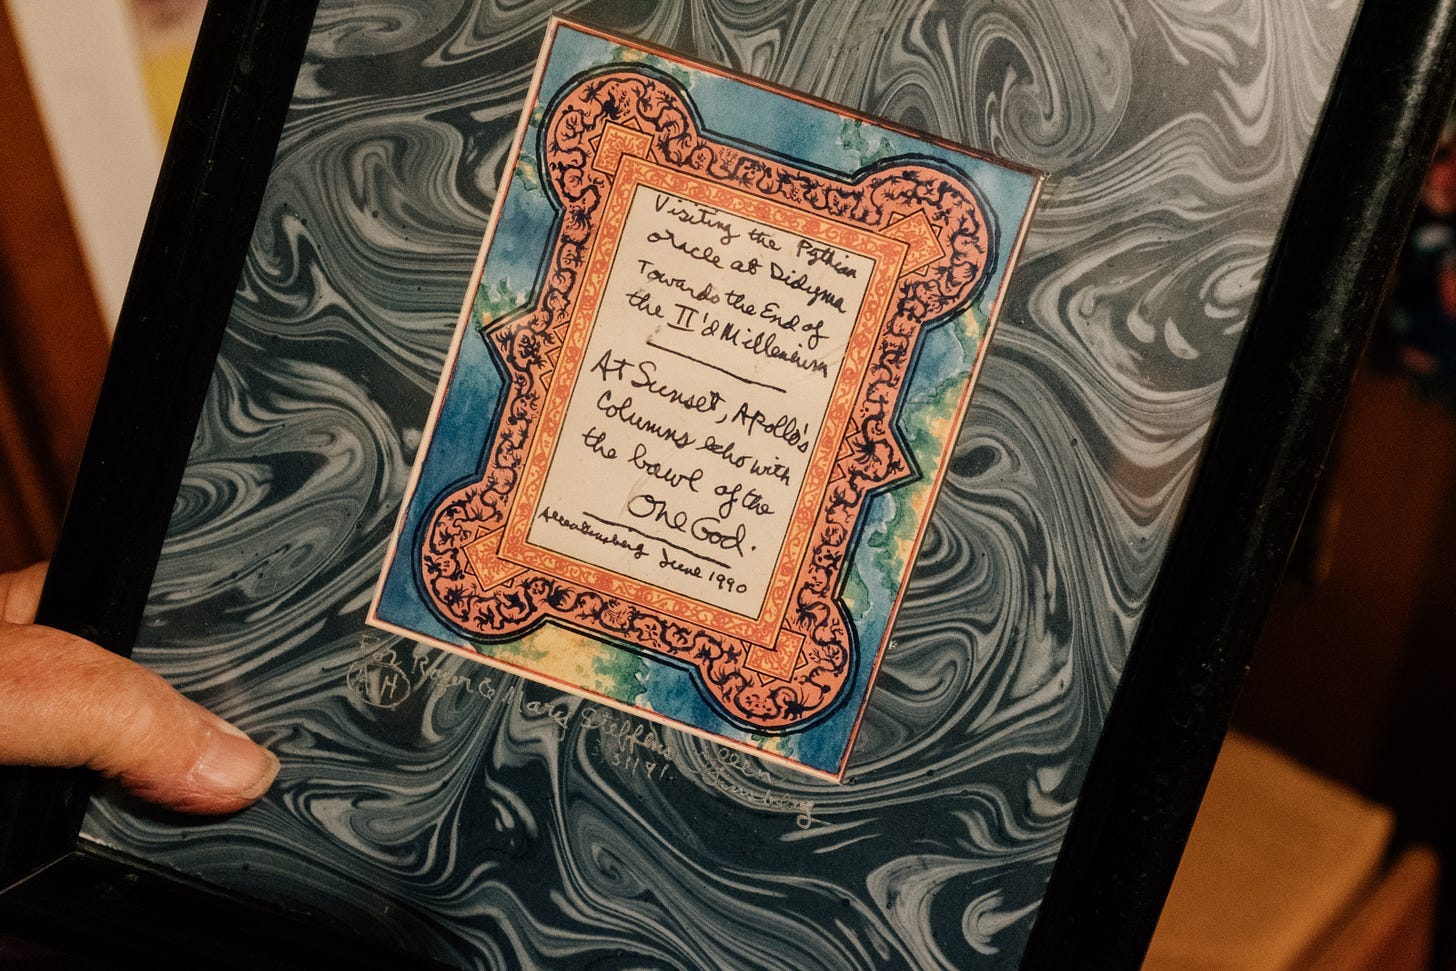 Visiting the Pythian
oracle at Didyma
Towards the End of
the II'd Millenium
At Sunset, Apollo's
Columns echo with
the bawl of the
One God.
Allen Ginsberg June 1990
For Roger & Mary Steffens Allen
AH
Ginsberg